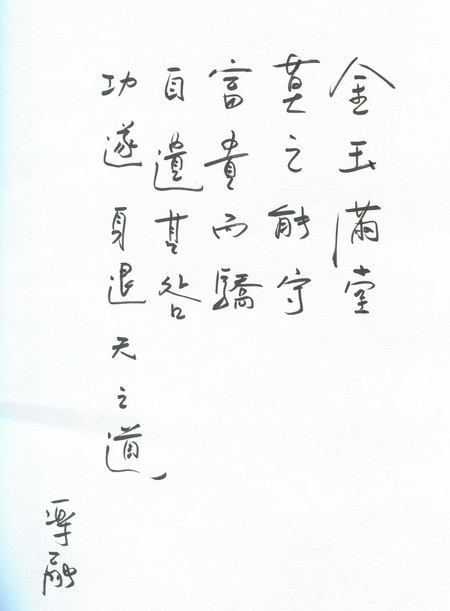 金玉滿堂
莫之能守
富貴而驕
自遺其咎
功遂身退天之道